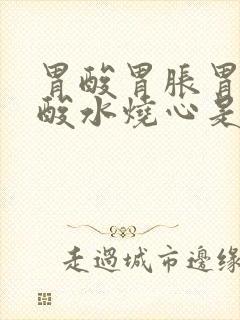 胃酸胃脹胃
酸水燒心是
走過城市邊緣